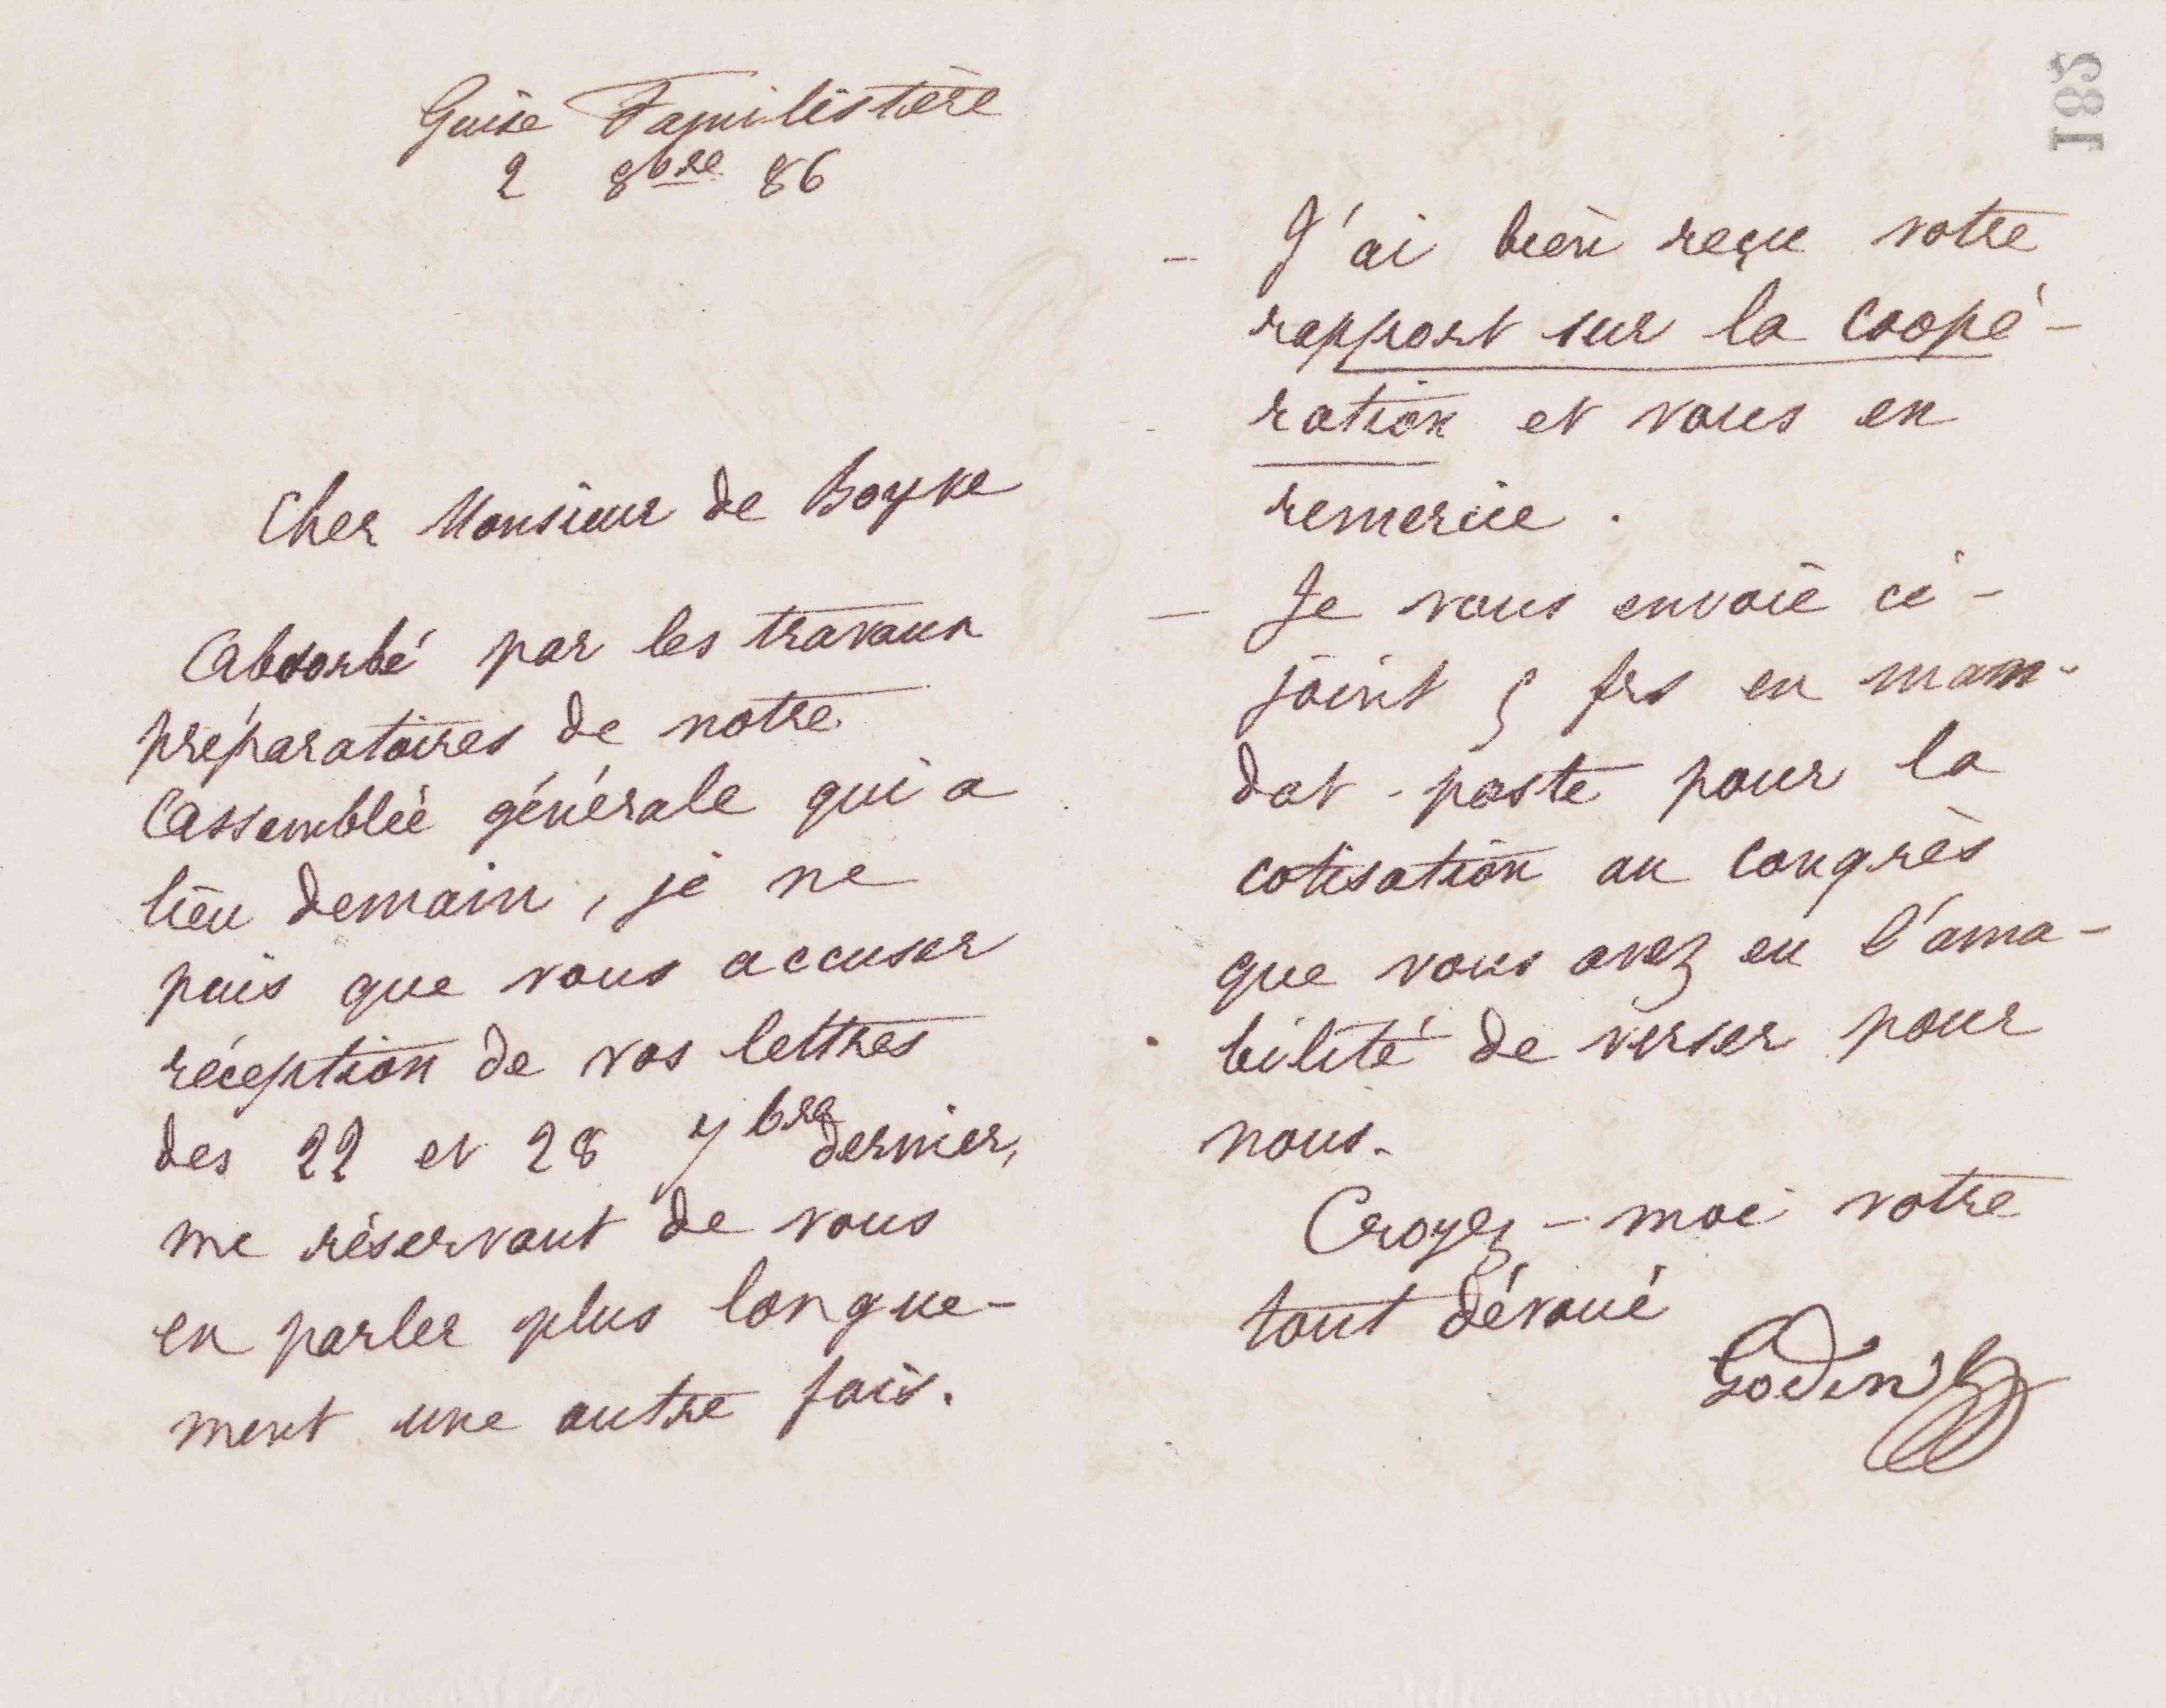 Guise Familistère
2 8bre 86
Cher Monsieur de Boyve
Absorbé par les travaux
préparatoires de notre
Assemblée générale qui a
lieu demain, je ne
puis que vous accuser
réception de vos lettres
des 22 et 28 7bre dernier,
me réservant de vous
en parler plus longue-
ment une autre fois.
185
- J'ai bien reçu votre
rapport sur la coopé-
ration et vous en
remercie.
- Je vous envoie ci-
joint 5 frs en man-
dat-poste pour la
cotisation au congrès
que vous avez eu l'ama-
bilité de verser pour
nous.
Croyez-moi votre
tout dévoué
Godin